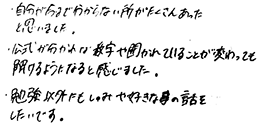 ・自分が今までわからない所がたくさんあった
と思いました。
・公式が分かれば数字や聞かれていることが変わっても
開けるようになると感じました。
・勉強以外にもしゅみや好きな事の話を
したいです。